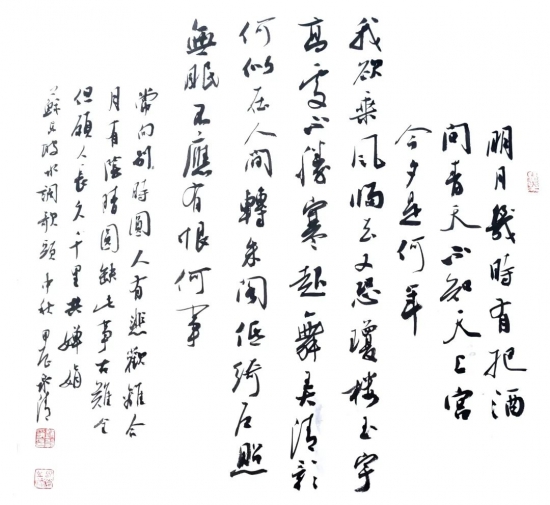 明月幾時有把酒
問青天不知天上宮
今夕是何年
我欲乘風歸去又恐瓊樓玉宇
高處不勝寒起舞弄清影
何似在人間轉朱閣低綺戶照
無眠不應有恨何事
常向別時圓人有悲歡離合
月有陰晴圓缺此事古難全
但願人長久千里共嬋娟
蘇水調歌頭中秋甲辰清